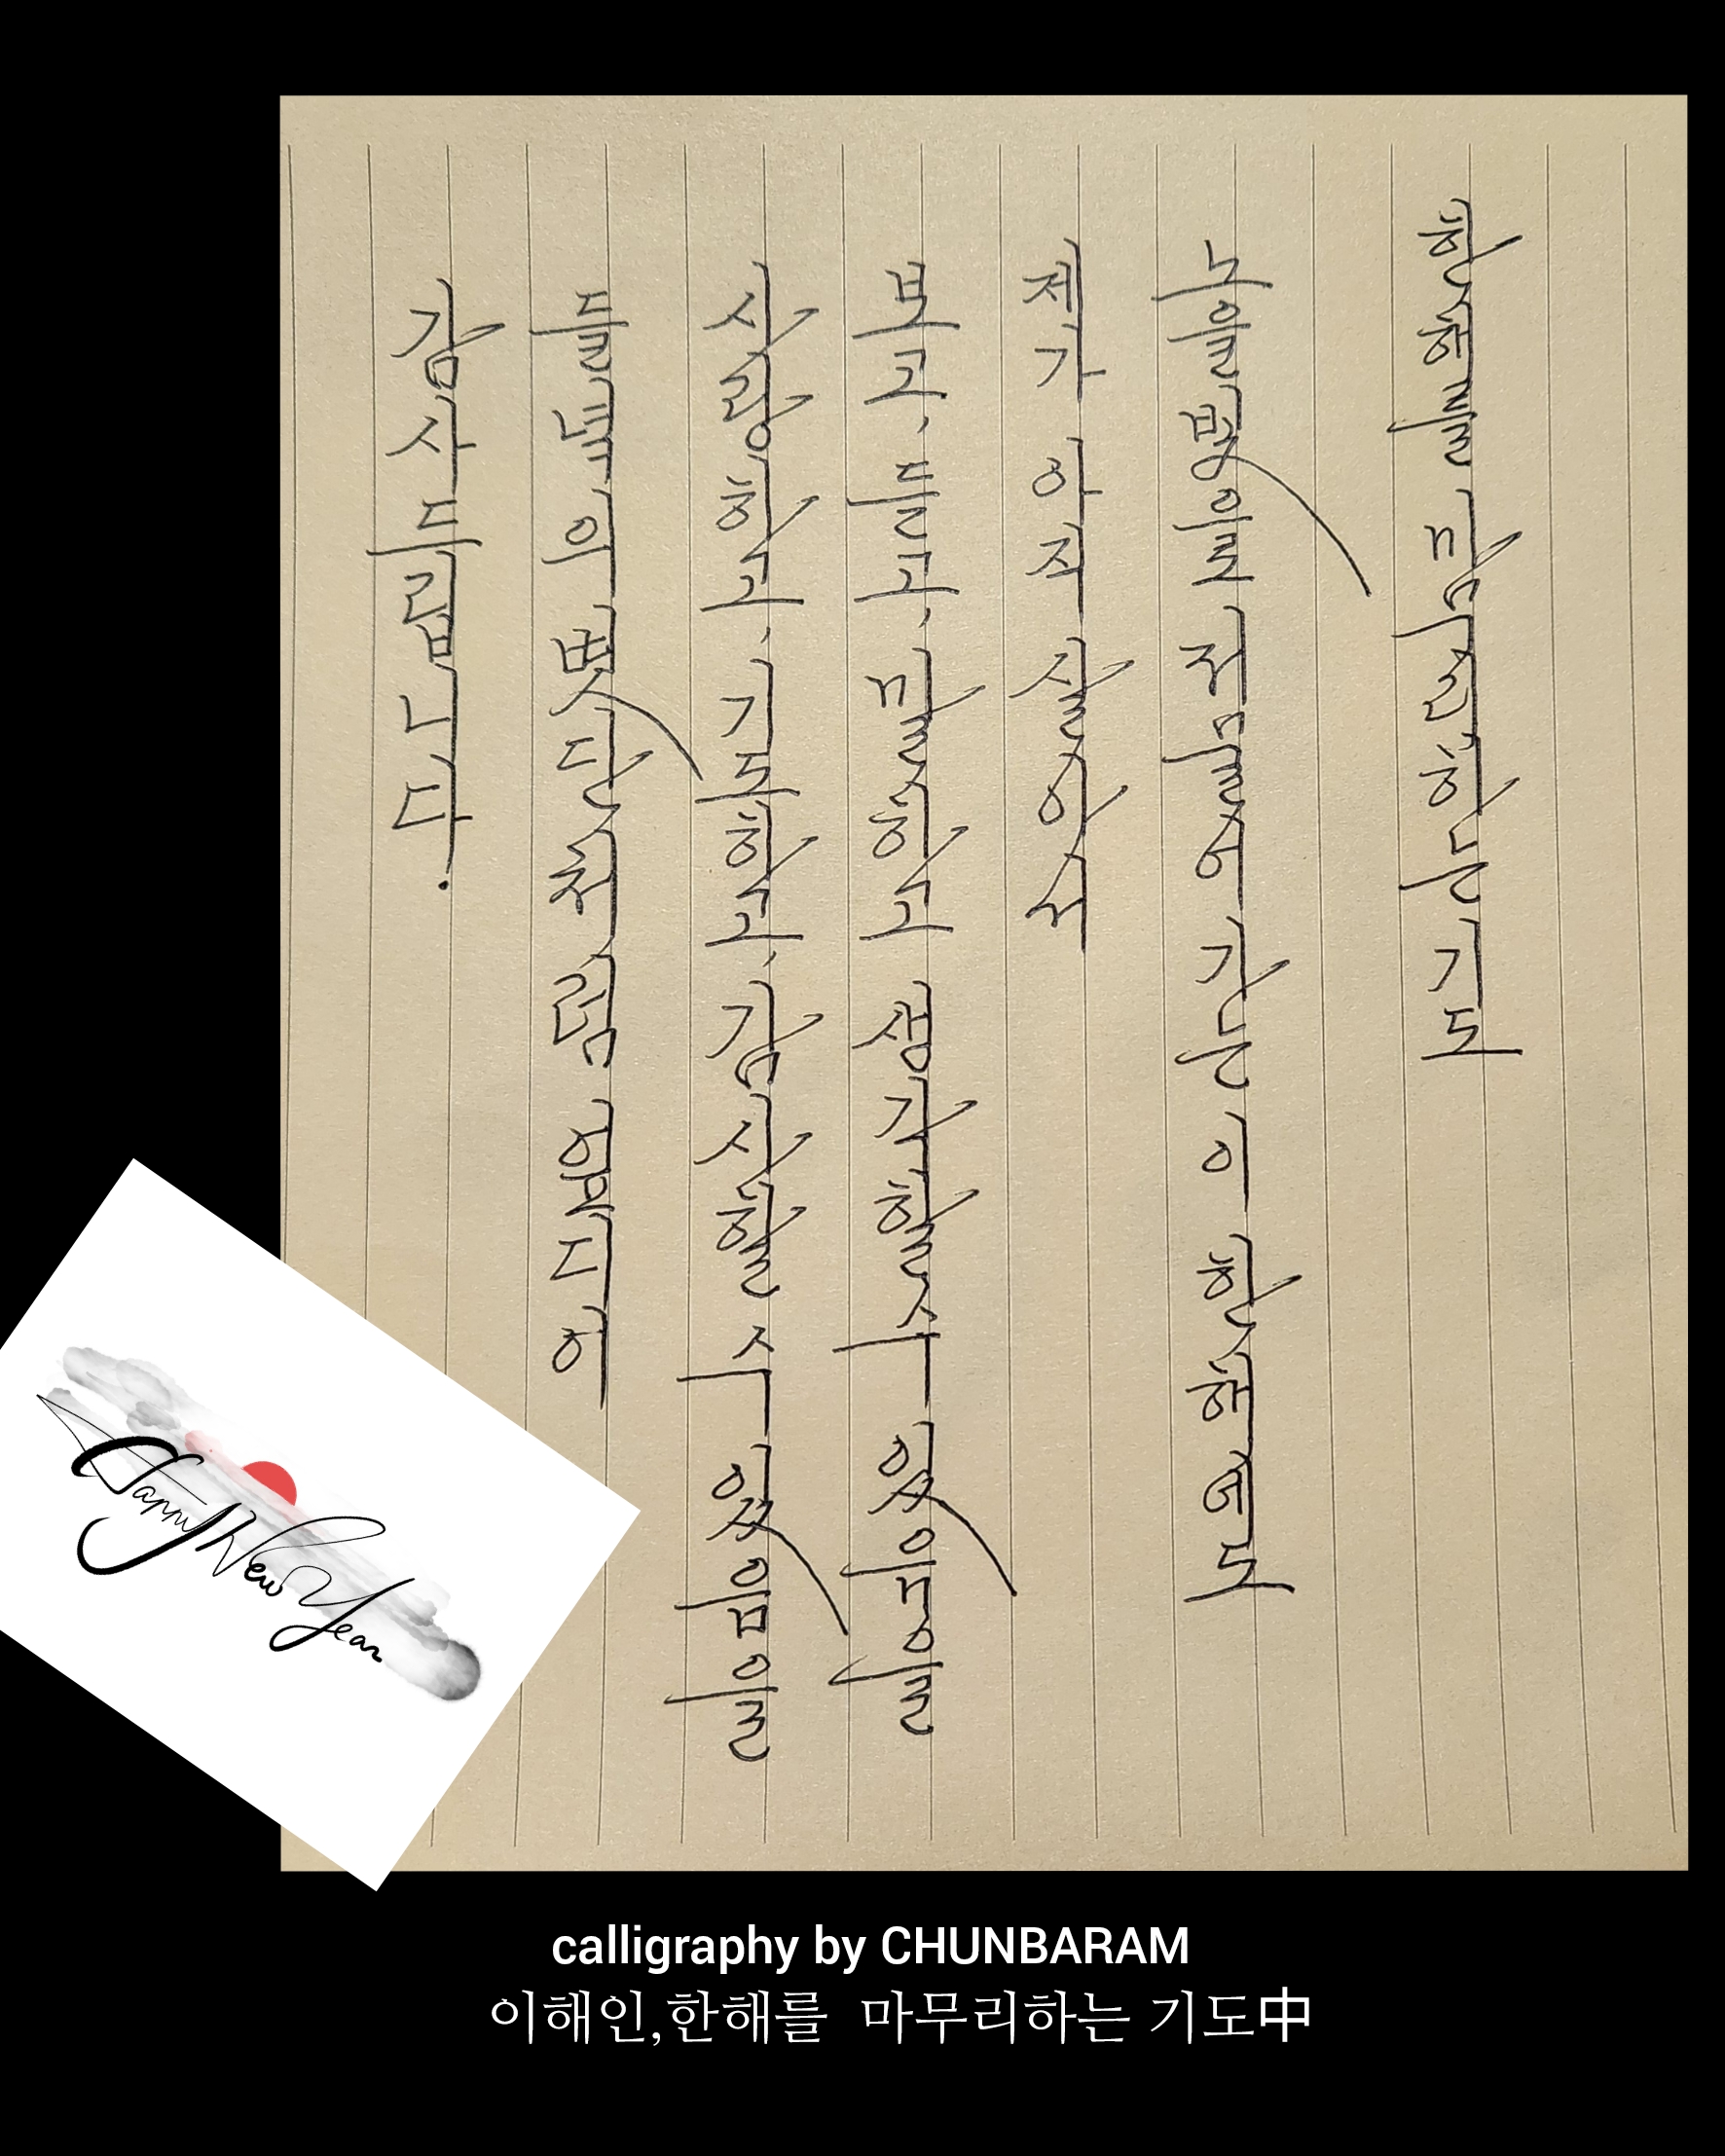 한해를 마무리하는 기도
노을빛으로 저물어가는 이 한해에도
제가 아직 살아서
보고, 듣고, 말하고 생각할수 있음을
사랑하고, 기도하고, 감사할 수 있음을
들녘의 볏단처럼 엎디어
감사드립니다.
Happy New Year
calligraphy by CHUNBARAM
이해인,한해를 마무리하는 기도中